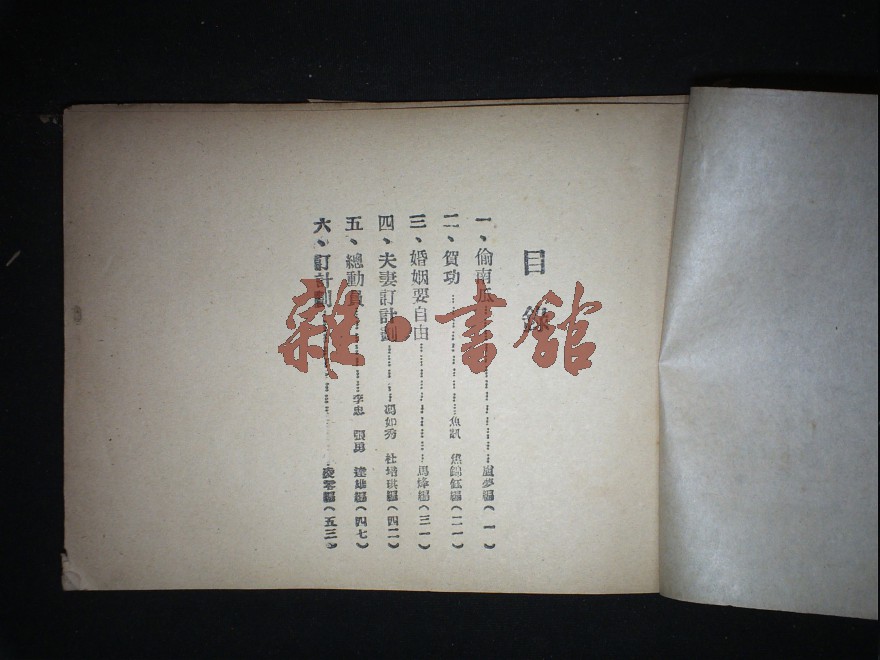 目錄
一、偷南瓜………盧夢編(一)
二、賀功………魚訊 焦錦缸編(二一)
三、婚姻要自由………馬烽編(三一)
四、夫妻訂計劃………馮如秀 杜培琪編(四二)
五、總動員………李忠 張勇 達雄編(四七)
六、訂計劃………編(五三)
雜·書館